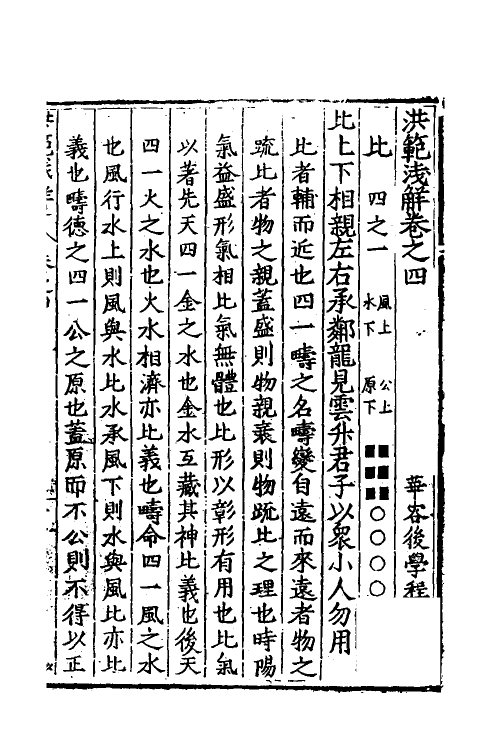 洪範浅解卷之四
華容後學程
比 四之一 風上 水下 公上 原下 〇〇〇〇
比上下相親左右承鄰龍見雲升君子以衆小人勿用
比者輔而近也四一疇之名疇變自遠而來遠者物之
䟽比者物之親蓋盛則物親衰則物䟽比之理也時陽
氣益盛形氣相比氣無體也比形以彰形有用也比氣
以著先天四一金之水也金水互藏其神比義也後天
四一火之水也火水相濟亦比義也疇命四一風之水
也風行水上則風與水比水承風下則水與風比亦比
義也疇德之四一公之原也蓋原而不公則不得以正